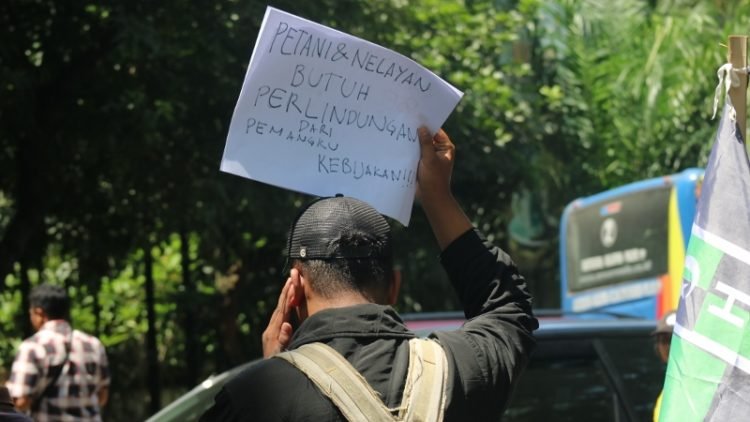 PETANI&NELAYAN
BUTUH
PERLINDUNGAN
DARI
PEMANGKU
KEBIJAKAN!!!
H